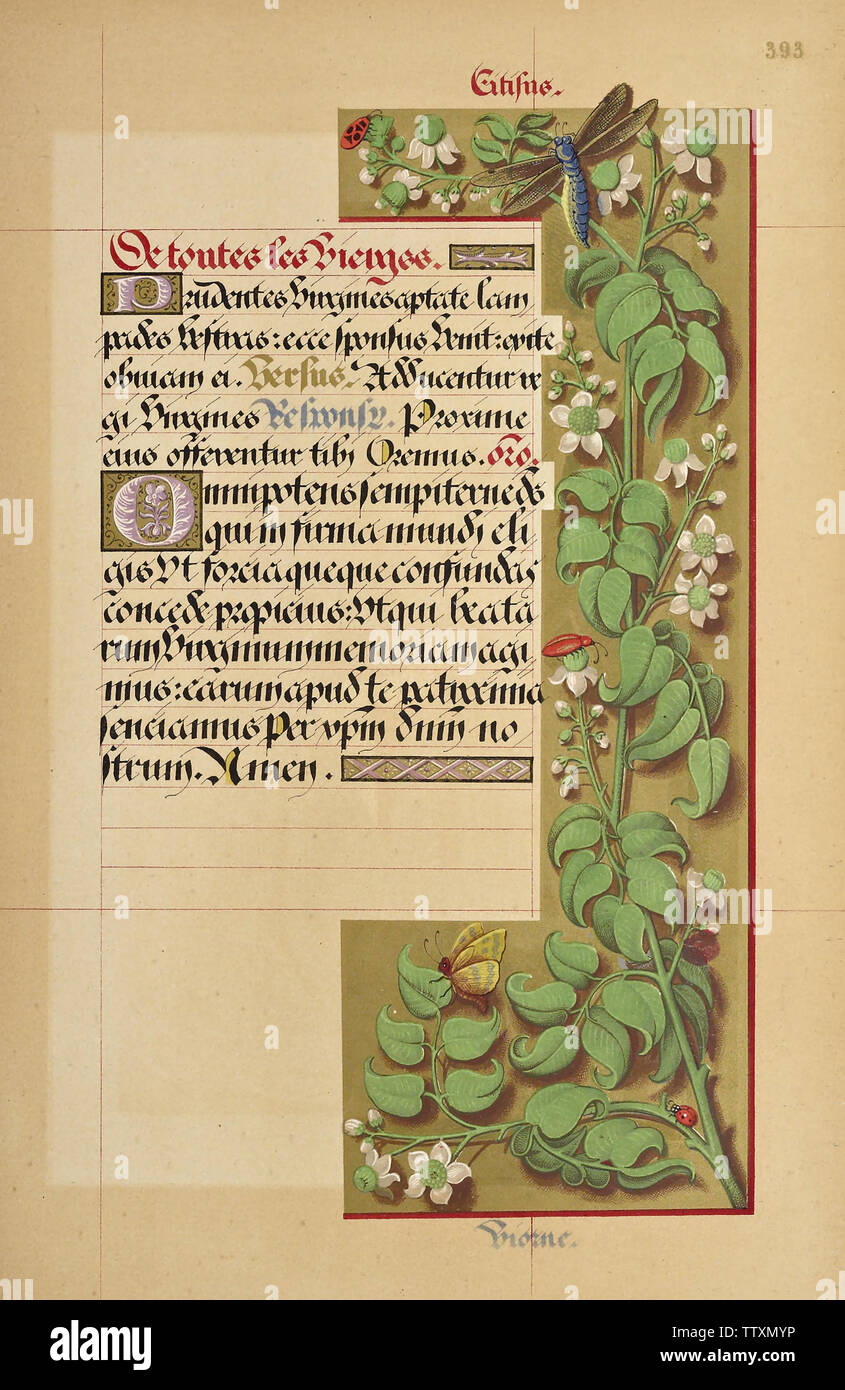 393
Citisus.
De toutes les Vierges.
Prudentes Virgines aptate lam
pades vestras: ecce sponsus venit: exite
obviam ei. Versus. Adducentur re
gi Virgines Responsꝰ. Proxime
eius offerentur tibj Oremus. Oro.
Omnipotens sempiterne ds
qui infirma mundj eli
gis Vt forcia queque confundas
concede propicius: Vt qui beata
rum Virginum memoriam agi
mus: earum apud te patrocinia
senciamus Per xpm dnm no
strum. Amen.
Viorne.
alamy
Image ID: TTXMYP
www.alamy.com